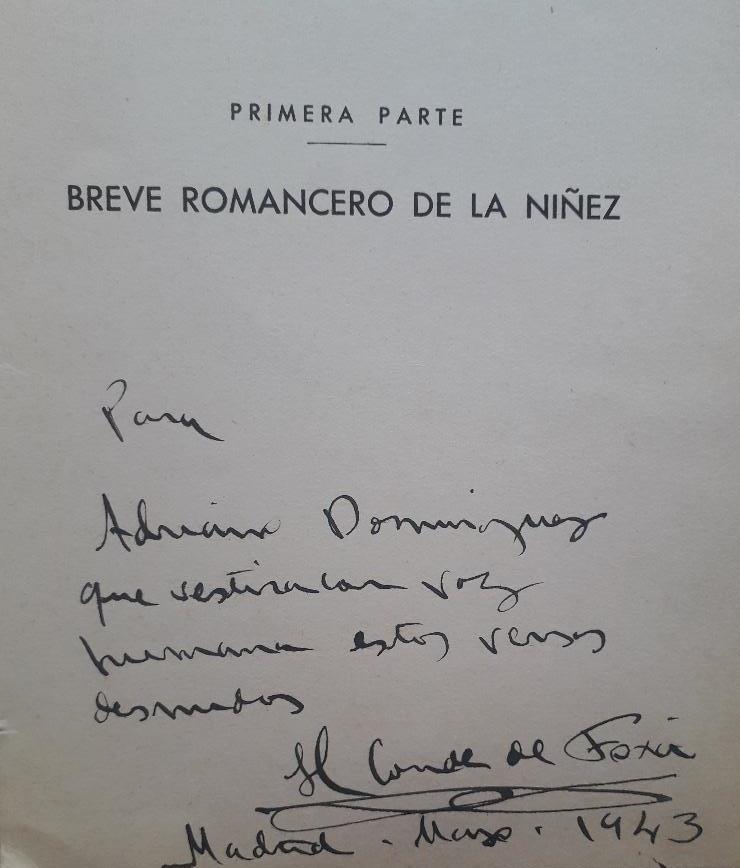 PRIMERA PARTE
BREVE ROMANCERO DE LA NIÑEZ
Para
Adrian Dominguez
que vestira con voz
humana estos versos
desnudos
El Conde de Foxá
Madrid. 1943